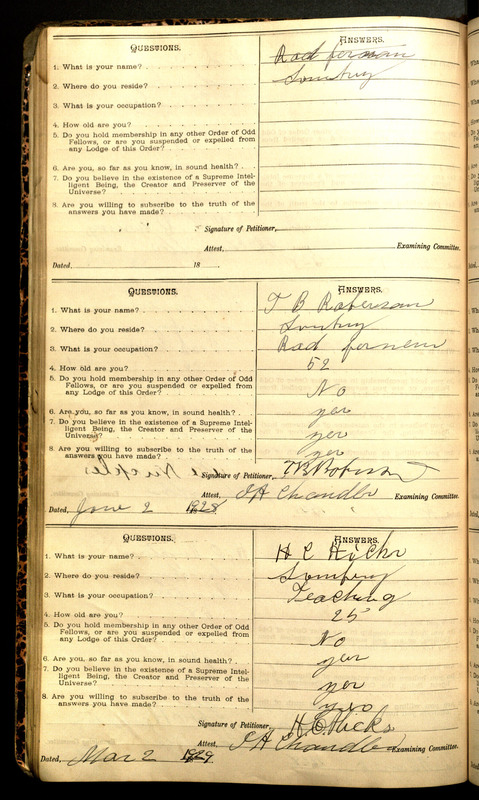 QUESTIONS. ANSWERS.
1. What is your name? Rod forman
2. Where do you reside? Sontry
3. What is your occupation?
4. How old are you?
5. Do you hold membership in any other Order of Odd
Fellows, or are you suspended or expelled from
any Lodge of this Order?
6. Are you, so far as you know, in sound health?
7. Do you believe in the existence of a Supreme Intel-
ligent Being, the Creator and Preserver of the
Universe?
8. Are you willing to subscribe to the truth of the
answers you have made?
Signature of Petitioner,
Attest, Examining Committee.
Dated, 18
QUESTIONS. ANSWERS.
1. What is your name? T B Roberson
2. Where do you reside?
3. What is your occupation? Rod
4. How old are you? 52
5. Do you hold membership in any other Order of Odd
Fellows, or are you suspended or expelled from
any Lodge of this Order? No
6. Are you, so far as you know, in sound health? yes
7. Do you believe in the existence of a Supreme Intel-
ligent Being, the Creator and Preserver of the
Universe? yes
8. Are you willing to subscribe to the truth of the
answers you have made? yes
Signature of Petitioner, T B Roberson
Attest, J A Chandler Examining Committee.
Dated, June 2 1928
QUESTIONS. ANSWERS.
1. What is your name? H C Hicks
2. Where do you reside?
3. What is your occupation? Teaching
4. How old are you? 25
5. Do you hold membership in any other Order of Odd
Fellows, or are you suspended or expelled from
any Lodge of this Order? No
6. Are you, so far as you know, in sound health? yes
7. Do you believe in the existence of a Supreme Intel-
ligent Being, the Creator and Preserver of the
Universe? yes
8. Are you willing to subscribe to the truth of the
answers you have made? yes
Signature of Petitioner, H. C. Hicks
Attest, J A Chandler Examining Committee.
Dated, Mar 2 1929